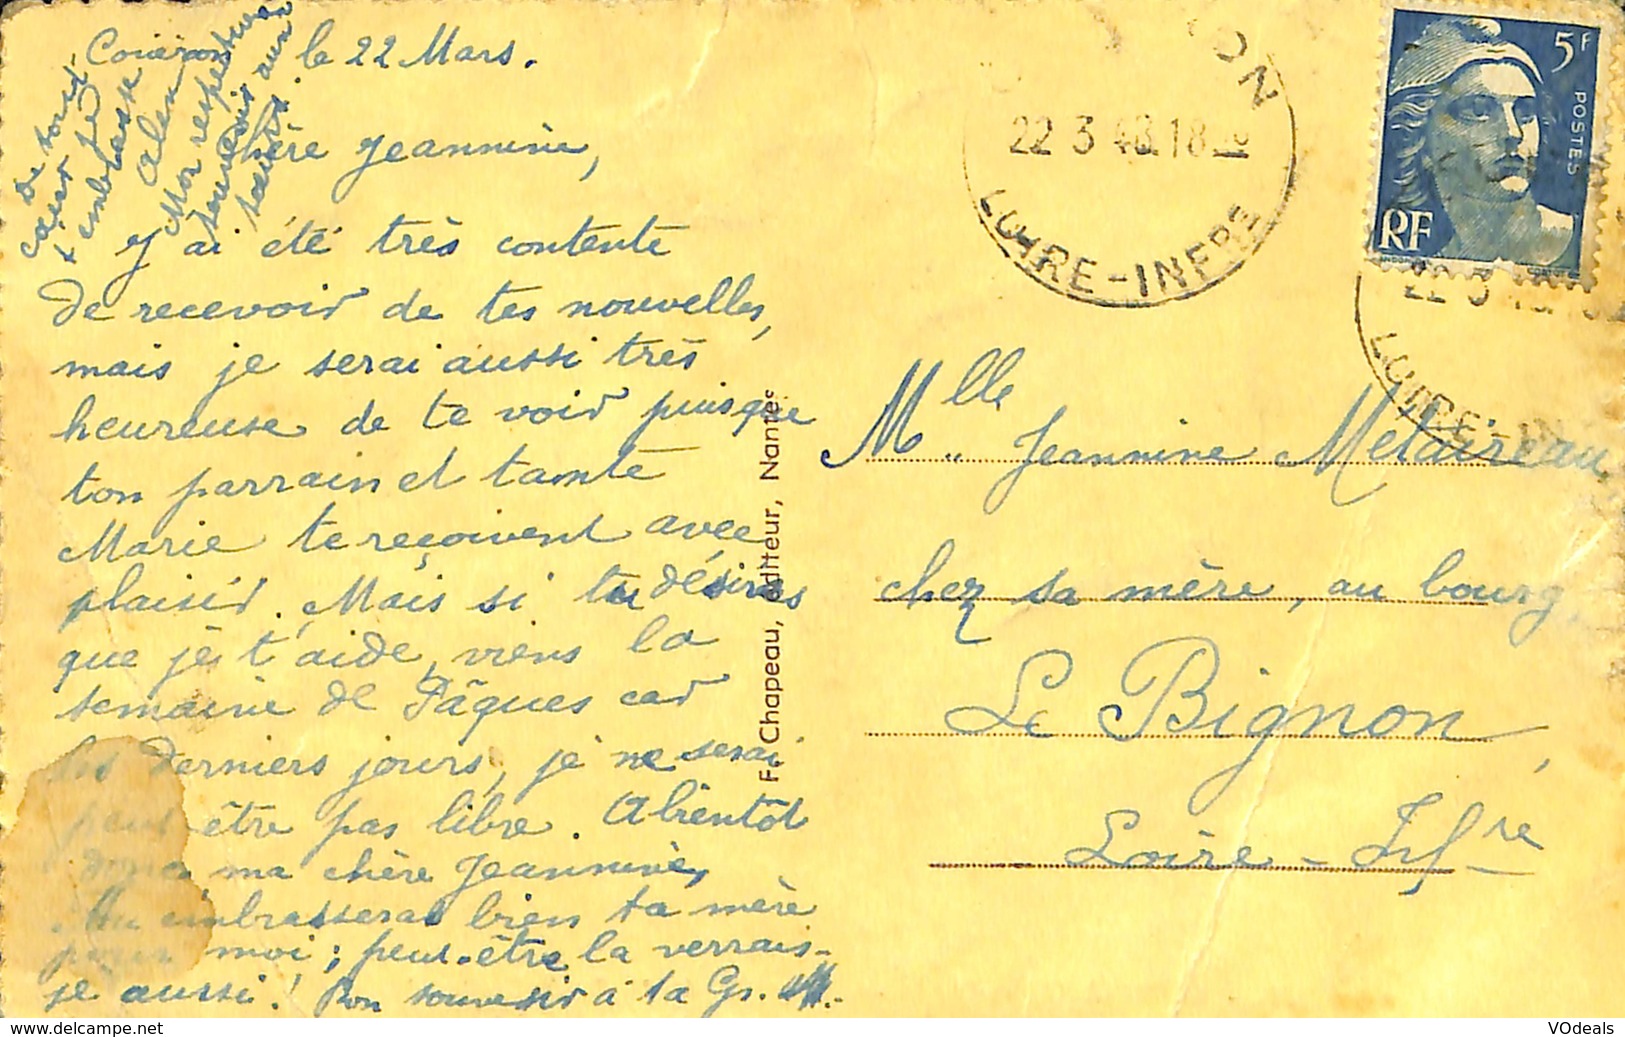 le 22 Mars.
De tout
cœur je
t'embrasse
Mon respectueux
souvenir aux
Jeannine,
J'ai été très contente
de recevoir de tes nouvelles,
mais je serai aussi très
heureuse de te voir puisque
ton parrain et tante
Marie te reçoivent avec
plaisir. Mais si tu désires
que je t'aide, viens la
semaine de Pâques car
les derniers jours, je ne serai
peut être pas libre. A bientôt
donc, ma chère Jeannine,
Tu embrasseras bien ta mère
pour moi ; peut-être la verrais-
je aussi ! Bon souvenir à ta Gr. M.
F. Chapeau, éditeur, Nantes
ON
22 3 48 18
LOIRE-INFRE
5F
POSTES
RF
22 3
LOIRE-IN
Mlle Jeannine Métaireau
chez sa mère, au bourg,
Le Bignon,
Loire-Infre
VOdeals.com